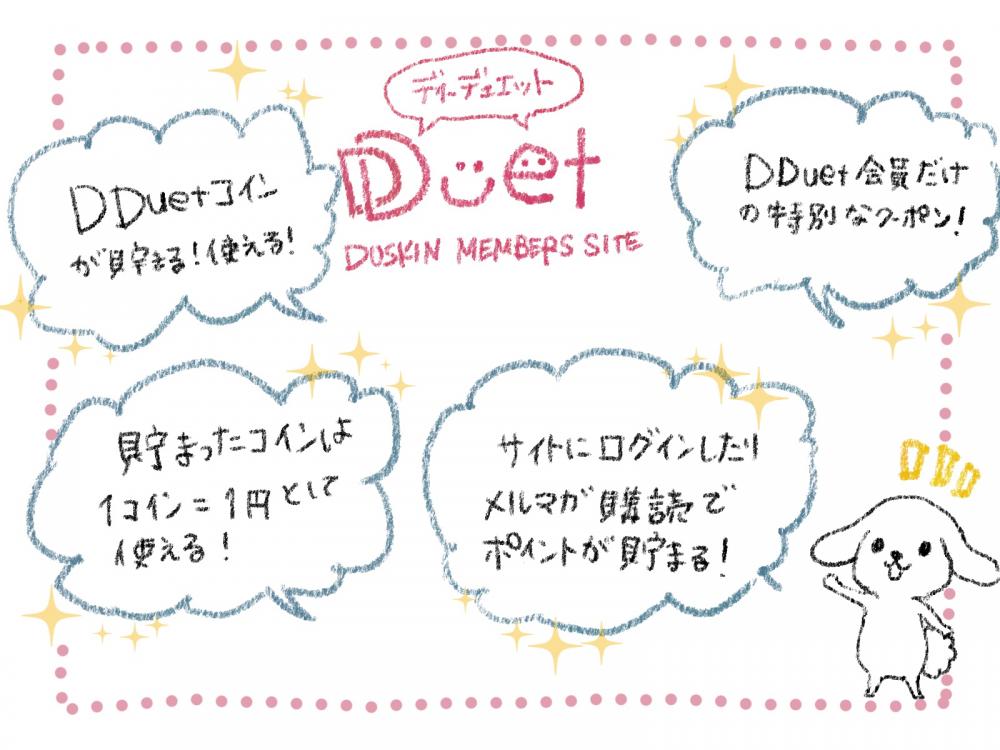 ディーデュエット
DDuet
DUSKIN MEMBERS SITE
DDuetコイン
が貯まる!使える!
DDuet会員だけ
の特別なクーポン!
貯まったコインは
1コイン=1円として
使える!
サイトにログインしたり
メルマガ購読で
ポイントが貯まる!